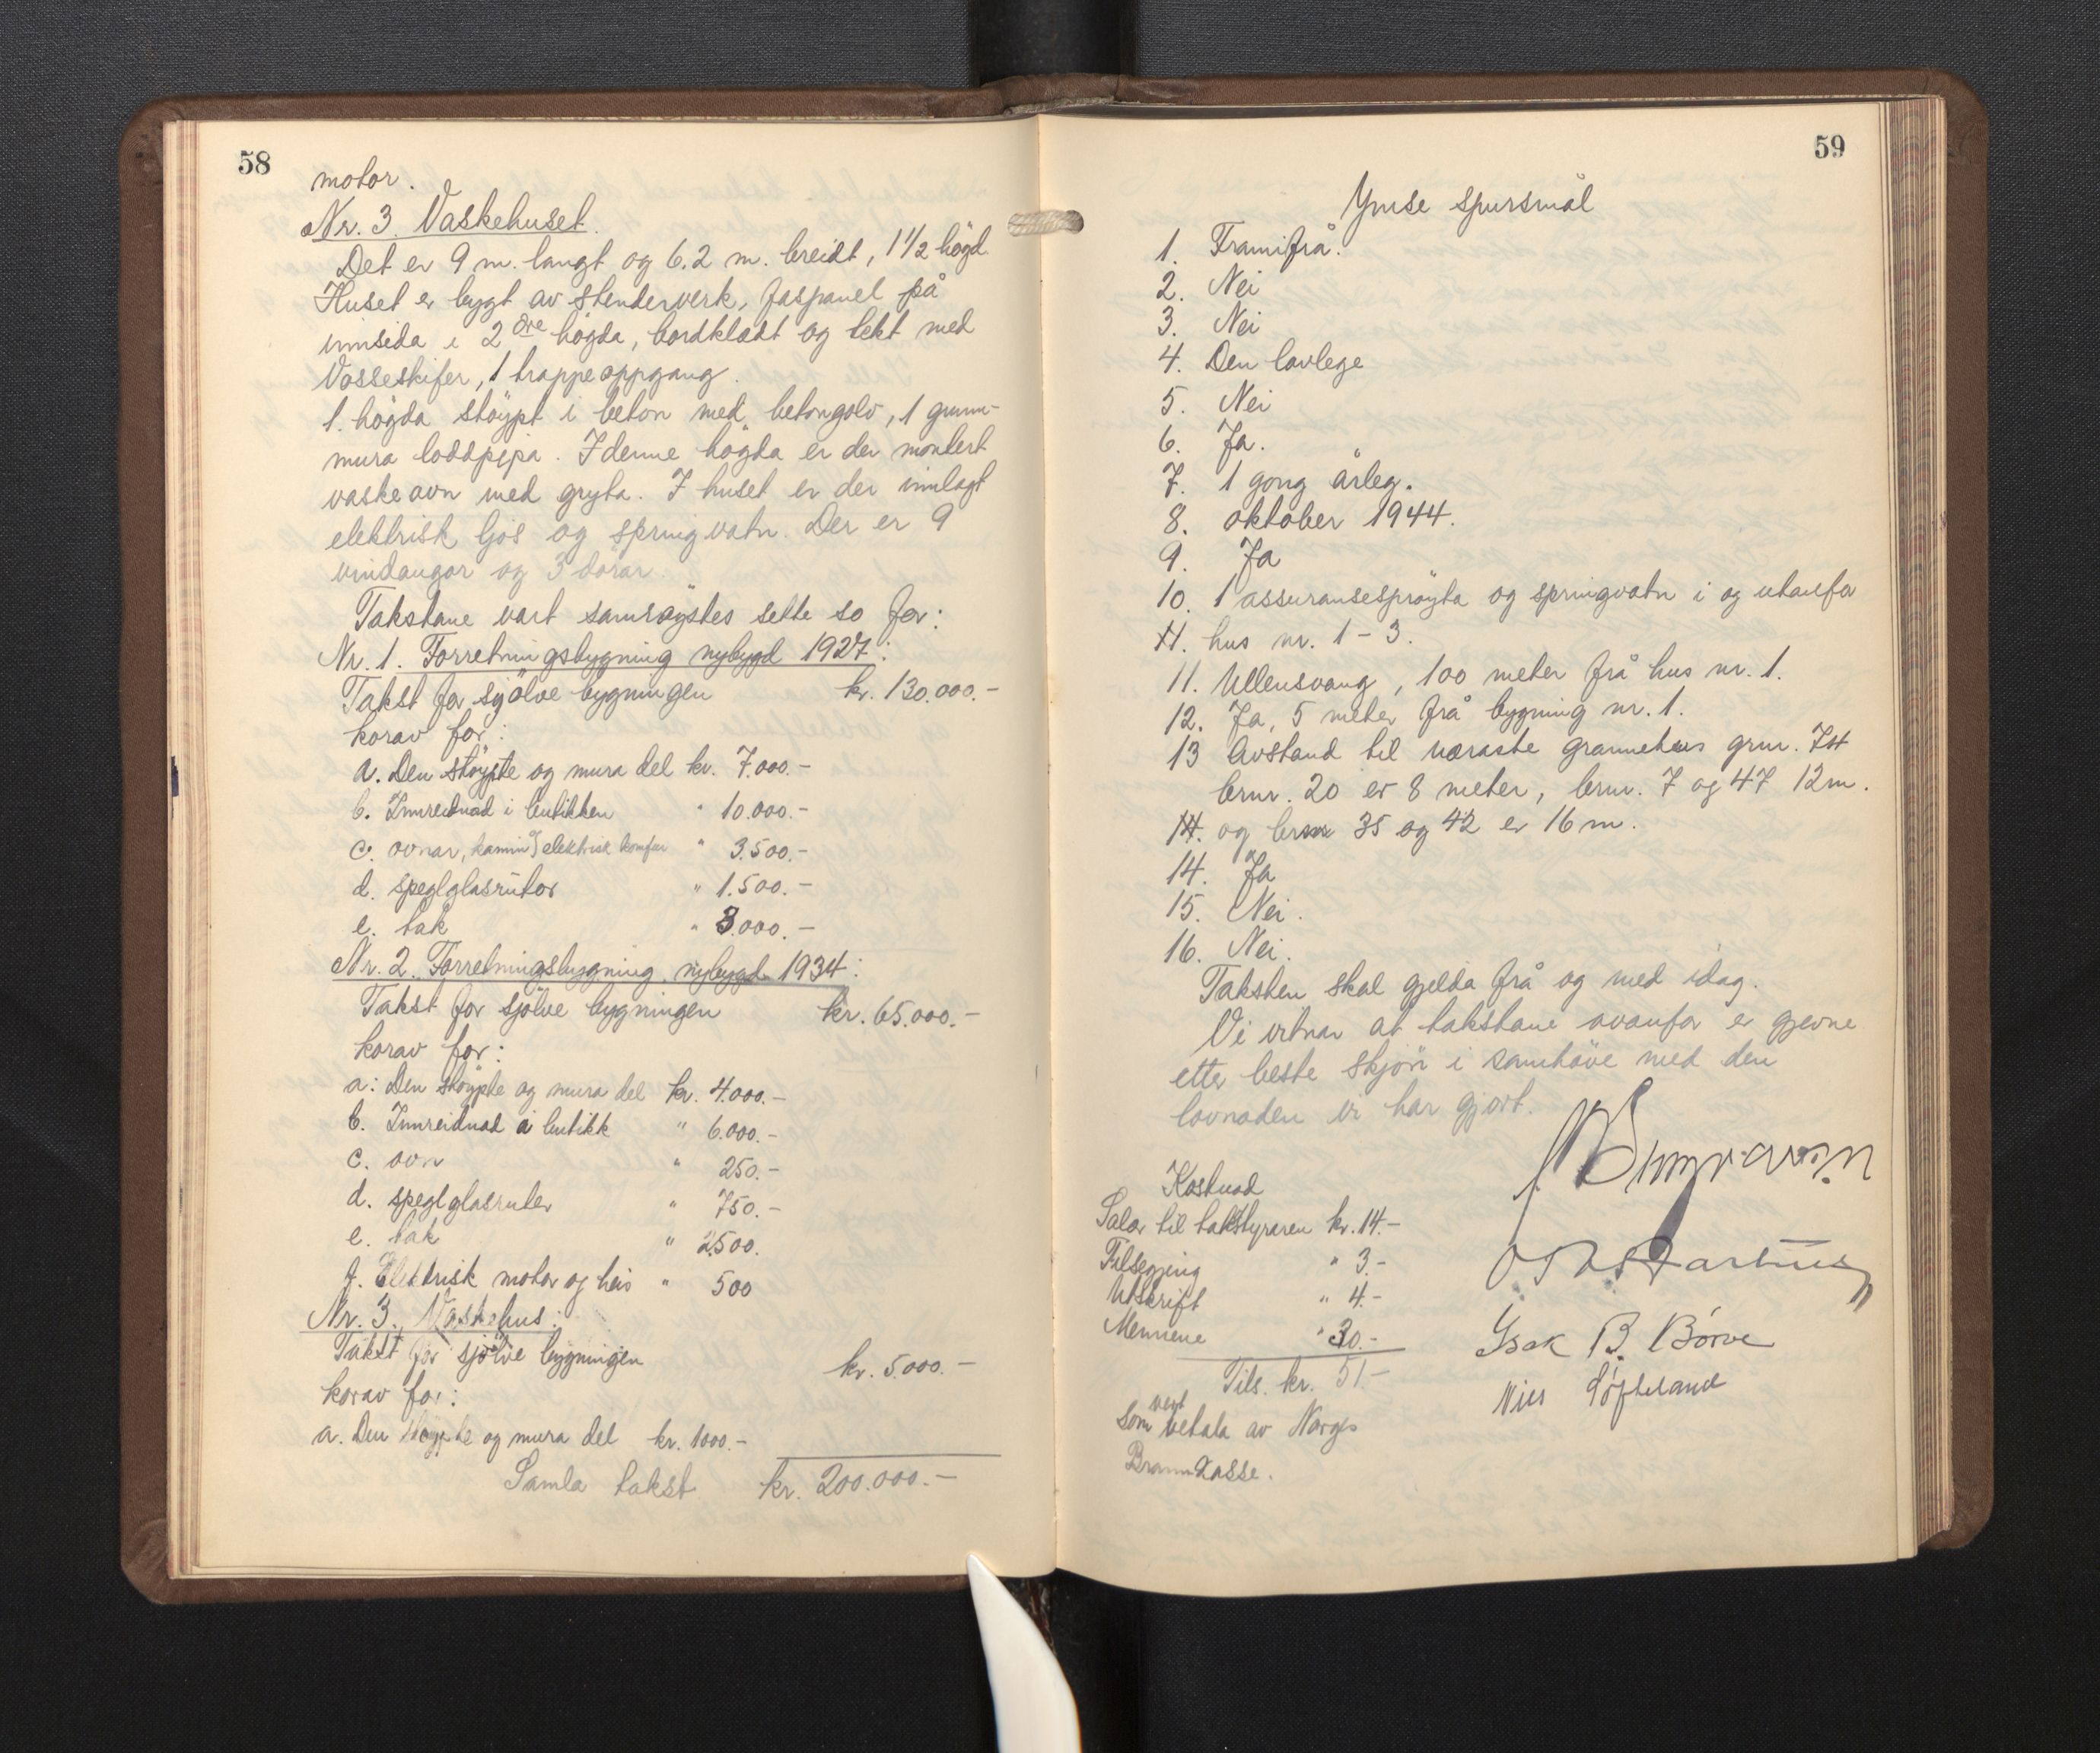 58
motor.
Nr. 3. Vaskehuset.
Det er 9 m. langt og 6.2 m. breidt, 1 1/2 högd.
Huset er bygt av stenderverk, faspanel på
innsida i 2 dre högda, bordklædt og tekt med
Vosseskifer, 1 trappeoppgang.
1. högda stöypt i beton med betongolv, 1 grunn-
mura loddpipa. I denne högda er der montert
vaskeovn med gryta. I huset er der innlagt
elektrisk ljos og springvatn. Der er 9
vindaugor og 3 dörar.
Takstane vart samröystes sette so for:
Nr. 1. Forretningsbygning nybygd 1927:
Takst for sjölve bygningen kr. 130.000.-
korav for:
a. Den stöypte og mura del kr. 7.000.-
b. Innreidnad i butikken " 10.000.-
c. ovnar, kamin og elektrisk komfur " 3.500.-
d. speglglasrutor " 1.500.-
e. tak " 3.000.-
Nr. 2. Forretningsbygning, nybygd 1934:
Takst for sjölve bygningen kr. 65.000.-
korav for:
a: Den stöypte og mura del kr. 4.000.-
b. Innreidnad i butikk " 6.000.-
c. ovn " 250.-
d. speglglasruter " 750.-
e. tak " 2500.
f. Elektrisk motor og heis " 500
Nr. 3. Vaskehus:
Takst for sjölve bygningen kr. 5.000.-
korav for:
a. Den stöypte og mura del kr. 1000.-
Samla takst kr. 200.000.-
59
Ymse spursmål
1. Framifrå.
2. Nei
3. Nei
4. Den lovlege
5. Nei
6. Ja.
7. 1 gong årleg.
8. oktober 1944.
9. Ja
10. 1 assuransespröyta og springvatn i og utanfor
11. hus nr. 1 - 3.
11. Ullensvang, 100 meter frå hus nr. 1.
12. Ja, 5 meter frå bygning nr. 1.
13 Avstand til næraste grannehus grnr. 74
brnr. 20 er 8 meter, brnr. 7 og 47 12 m.
14. og brnr 35 og 42 er 16 m.
14. Ja
15. Nei.
16. Nei.
Taksten skal gjelda frå og med idag.
Vi vitnar at takstane ovanfor er gjevne
etter beste skjön i samhöve med den
lovnaden vi har gjort.
Kostnad
Salær til takstyraren kr. 14.-
Tilsegjing " 3.-
Utskrift " 4.-
Mennene " 30.-
Tils. kr. 51.-
som vert betala av Norges
Brannkasse.
Isak B. Börve
Nils Löfteland